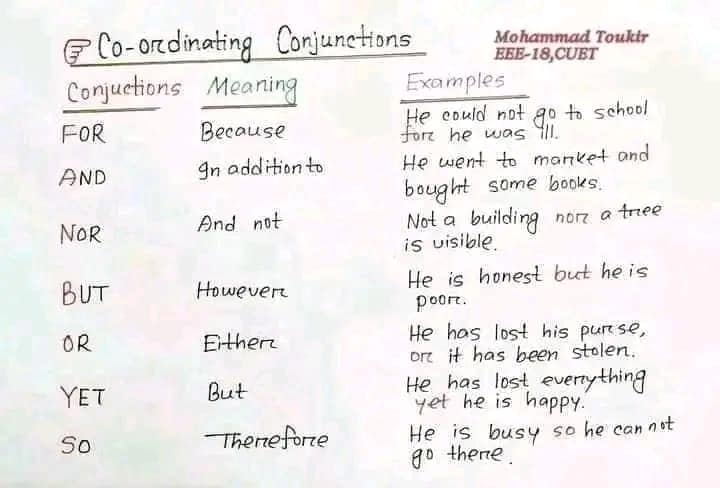 ☞ Co-ordinating Conjunctions
Mohammad Toukir
EEE-18,CUET
Conjuctions Meaning Examples
FOR Because He could not go to school
for he was ill.
AND In addition to He went to market and
bought some books.
NOR And not Not a building nor a tree
is visible.
BUT However He is honest but he is
poor.
OR Either He has lost his purse,
or it has been stolen.
YET But He has lost everything
yet he is happy.
SO Therefore He is busy so he can not
go there.